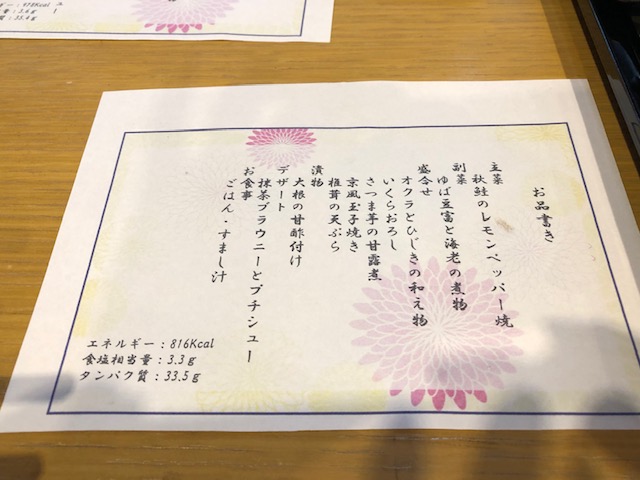 お品書き
主菜
秋鮭のレモンペッパー焼
副菜
ゆば豆富と海老の煮物
盛合せ
オクラとひじきの和え物
いくらおろし
さつま芋の甘露煮
京風玉子焼き
椎茸の天ぷら
漬物
大根の甘酢付け
デザート
抹茶ブラウニーとプチシュー
お食事
ごはん・すまし汁
エネルギー：816Kcal
食塩相当量：3.3g
タンパク質：33.5g